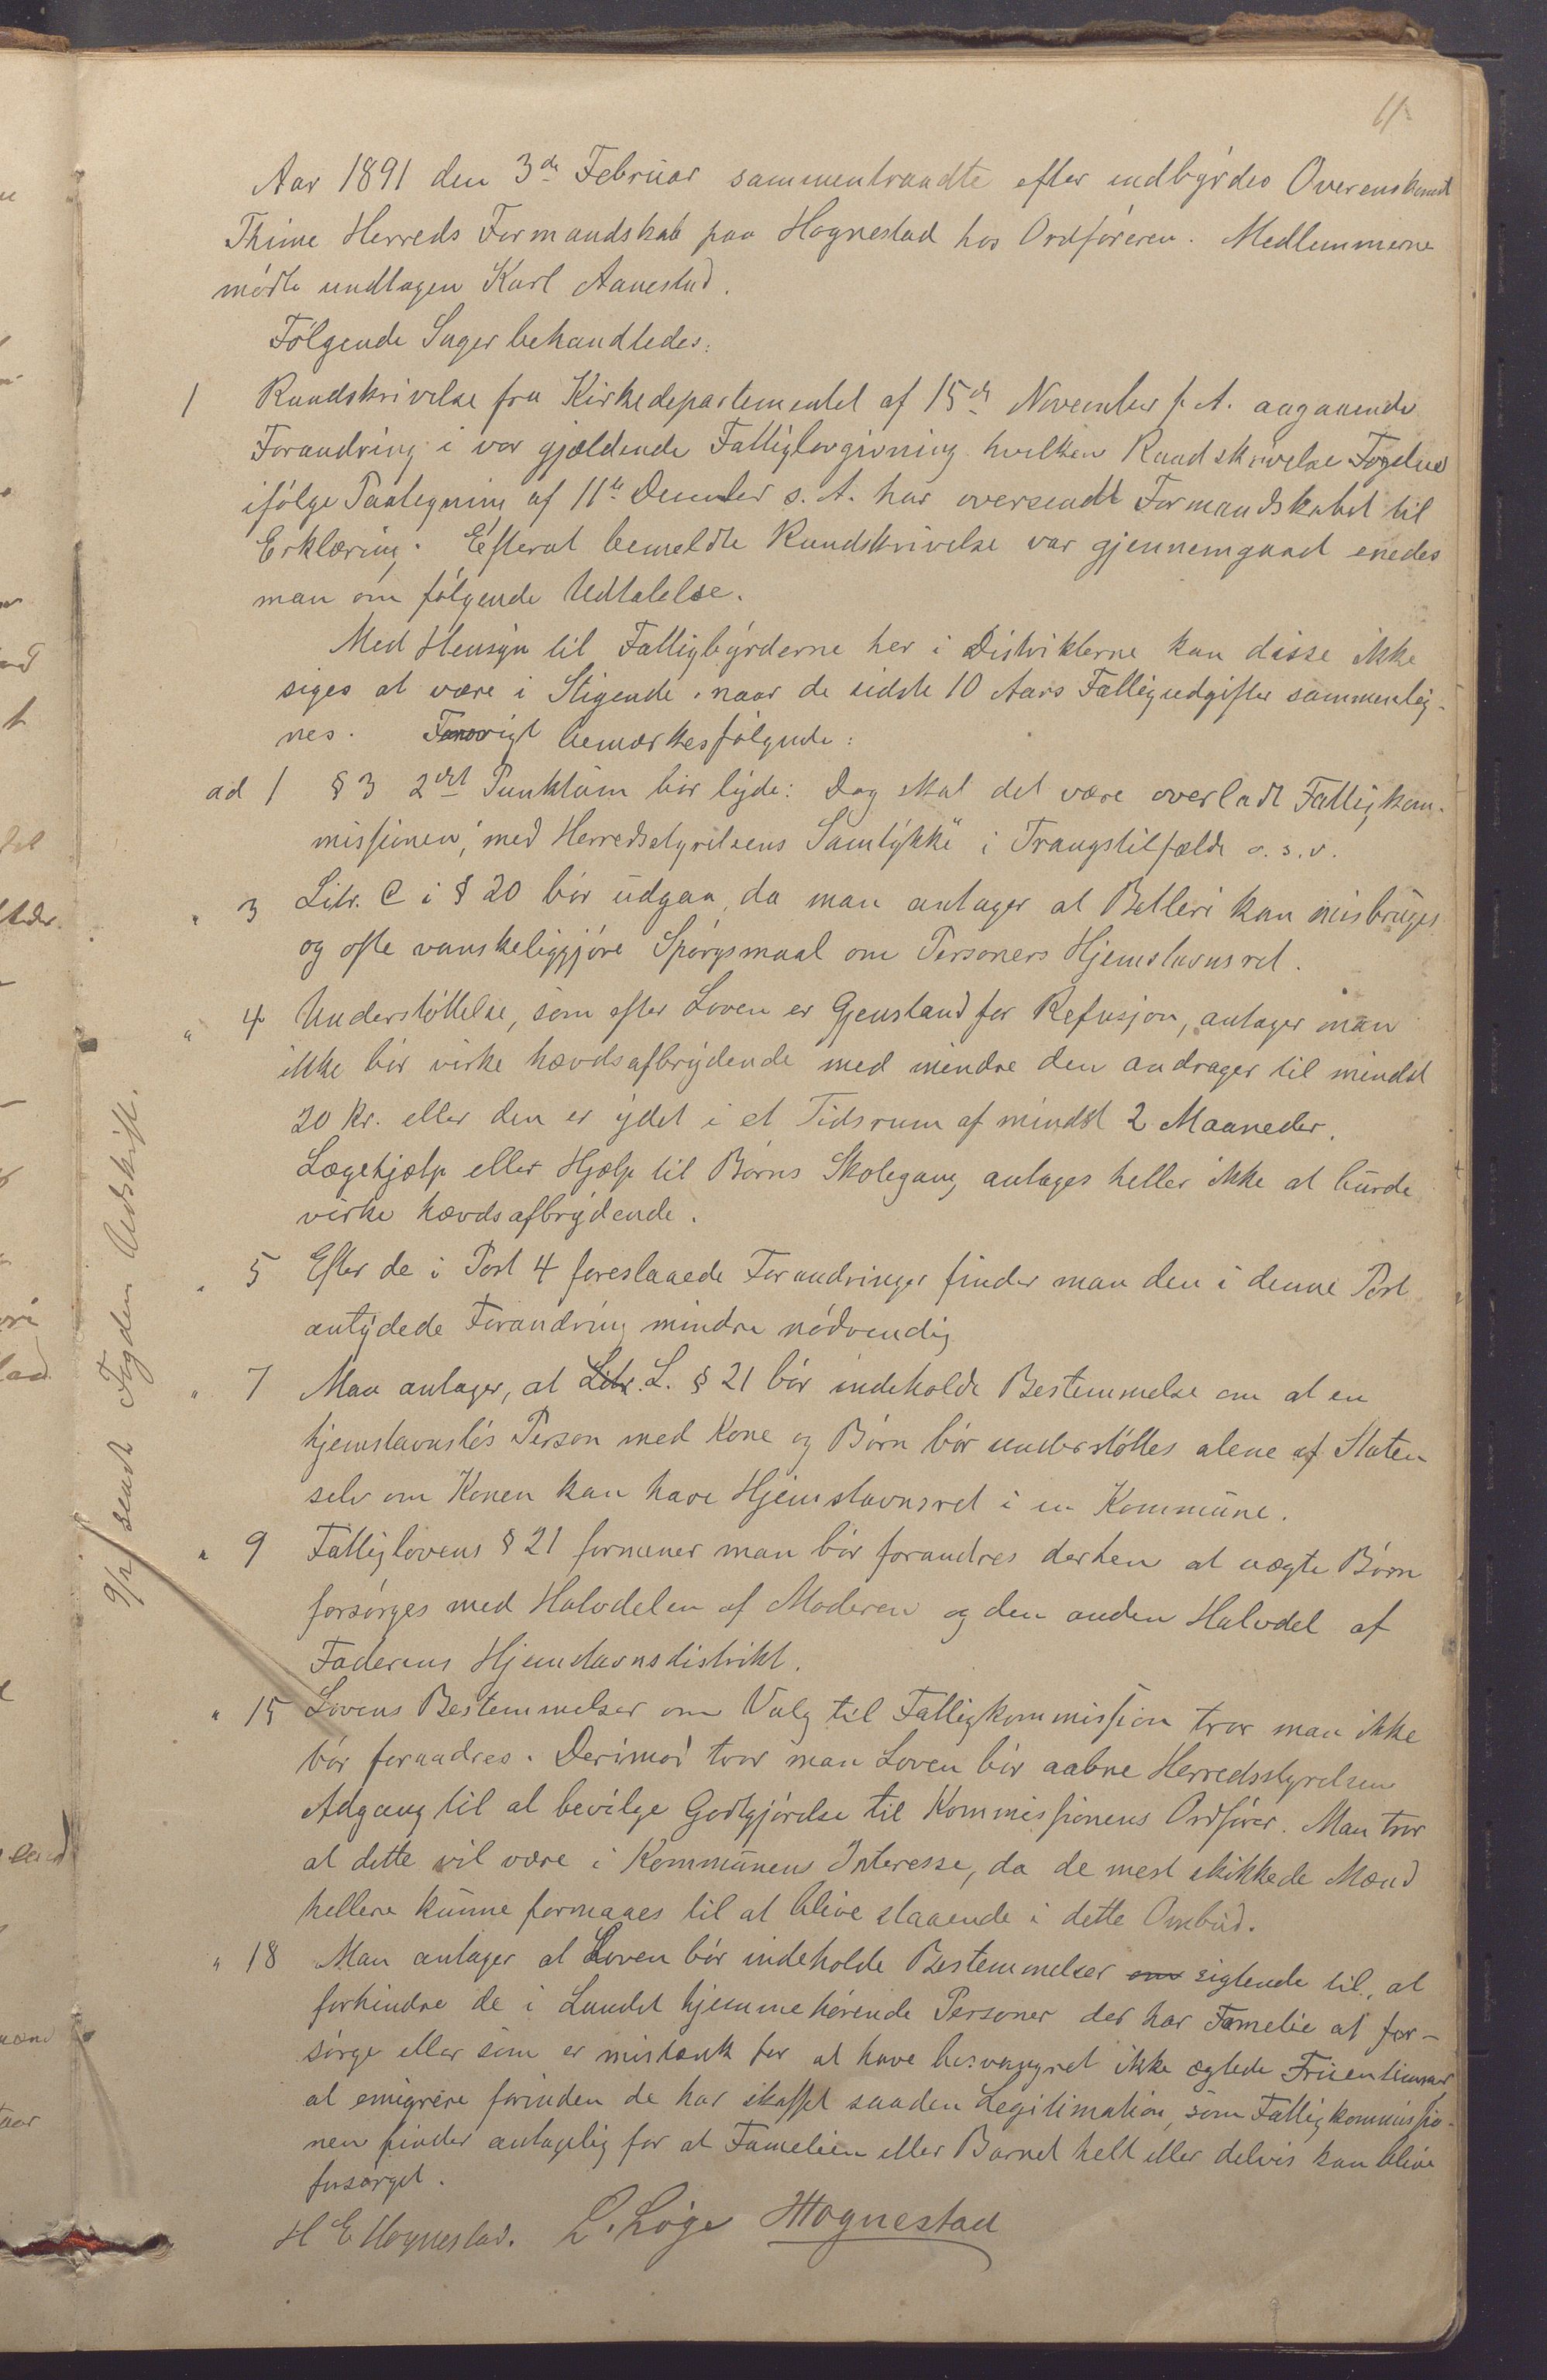 Aar 1891 den 3de Februar sammentraadte efter indbyrdes Overenskomst
Thime Herreds Formandskab paa Hognestad hos Ordføreren. Medlemmerne
mødte undtagen Karl Aanestad.
Følgende Sager behandledes:
1 Rundskrivelse fra Kirkedepartementet af 15de November f. A. angaaende
Forandring i vor gjældende Fattiglovgivning hvilken Rundskrivelse Fogden
ifølge Paategning af 11te December s. A. har oversendt Formandskabet til
Erklæring. Efterat bemeldte Rundskrivelse var gjennemgaaet enedes
man om følgende Udtalelse.
Med Hensyn til Fattigbyrderne her i Distrikterne kan disse ikke
siges at være i Stigende naar de sidste 10 Aars Fattigudgifter sammenlig-
nes. Forøvrigt bemærkes følgende:
ad 1 § 3 2det Punktum bør lyde: Dog skal det være overladt Fattigkom-
missionen, "med Herredsstyrelsens Samtykke" i Trangstilfælde o. s. v.
" 3 Litr. C i § 20 bør udgaa, da man antager at Betleri kan misbruges
og ofte vanskeliggjøre Spørgsmaal om Personers Hjemstavnsret.
" 4 Understøttelse, som efter Loven er Gjenstand for Refusjon, antager man
ikke bør virke hævdsafbrydende med mindre den andrager til mindst
20 Kr. eller den er ydet i et Tidsrum af mindst 2 Maaneder.
Lægehjælp eller Hjælp til Børns Skolegang antages heller ikke at burde
virke hævdsafbrydende.
" 5 Efter de i Post 4 foreslaaede Forandringer finder man den i denne Post
antydede Forandring mindre nødvendig
" 7 Man antager, at Litr. L. § 21 bør indeholde Bestemmelse om at en
hjemstavnsløs Person med Kone og Børn bør understøttes alene af Staten
selv om Konen kan have Hjemstavnsret i en Kommune.
" 9 Fattiglovens § 21 formener man bør forandres derhen at uægte Børn
forsørges med Halvdelen af Moderen og den anden Halvdel af
Faderens Hjemstavnsdistrikt.
" 15 Lovens Bestemmelser om Valg til Fattigkommission tror man ikke
bør forandres. Derimod tror man Loven bør aabne Herredsstyrelsen
Adgang til at bevilge Godtgjørelse til Kommissionens Ordfører. Man tror
at dette vil være i Kommunens Interesse, da de mest skikkede Mænd
hellere kunne formaaes til at blive staaende i dette Ombud.
" 18 Man antager at Loven bør indeholde Bestemmelser om sigtende til, at
forhindre de i Landet hjemmehørende Personer der har Famelie at for-
sørge eller som er mistænk for at have besvangret ikke ægtede Fruentimmer
at emigrere forinden de har skaffet saaden Legitimation, som Fattigkommissio-
nen finder antagelig for at Famelien eller Barnet helt eller delvis kan blive
forsørget.
H E Hognestad. L. Løge Hognestad
9/2 sendt Fogden Udskrift.